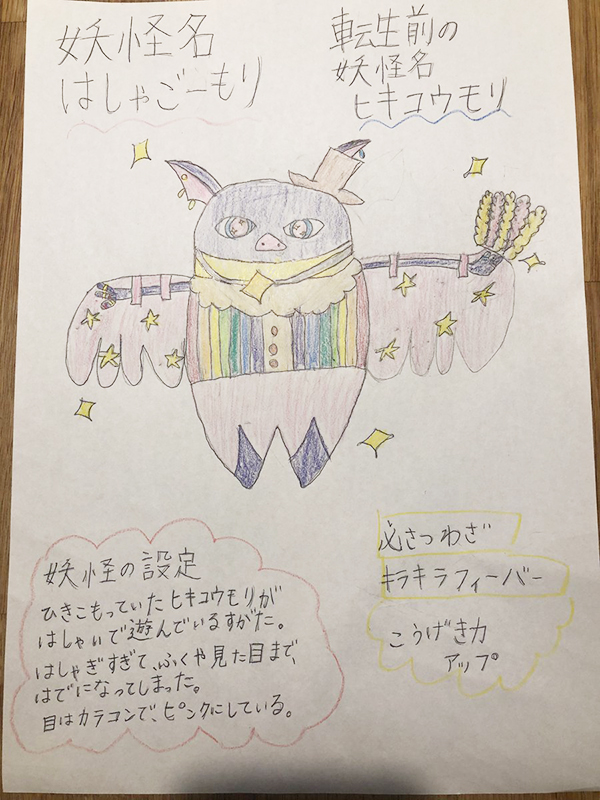 妖怪名
はしゃごーもり
転生前の
妖怪名
ヒキコウモリ
妖怪の設定
ひきこもっていたヒキコウモリが
はしゃいで遊んでいるすがた。
はしゃぎすぎて、ふくや見た目まで、
はでになってしまった。
目はカラコンで、ピンクにしている。
必さつわざ
キラキラフィーバー
こうげき力
アップ